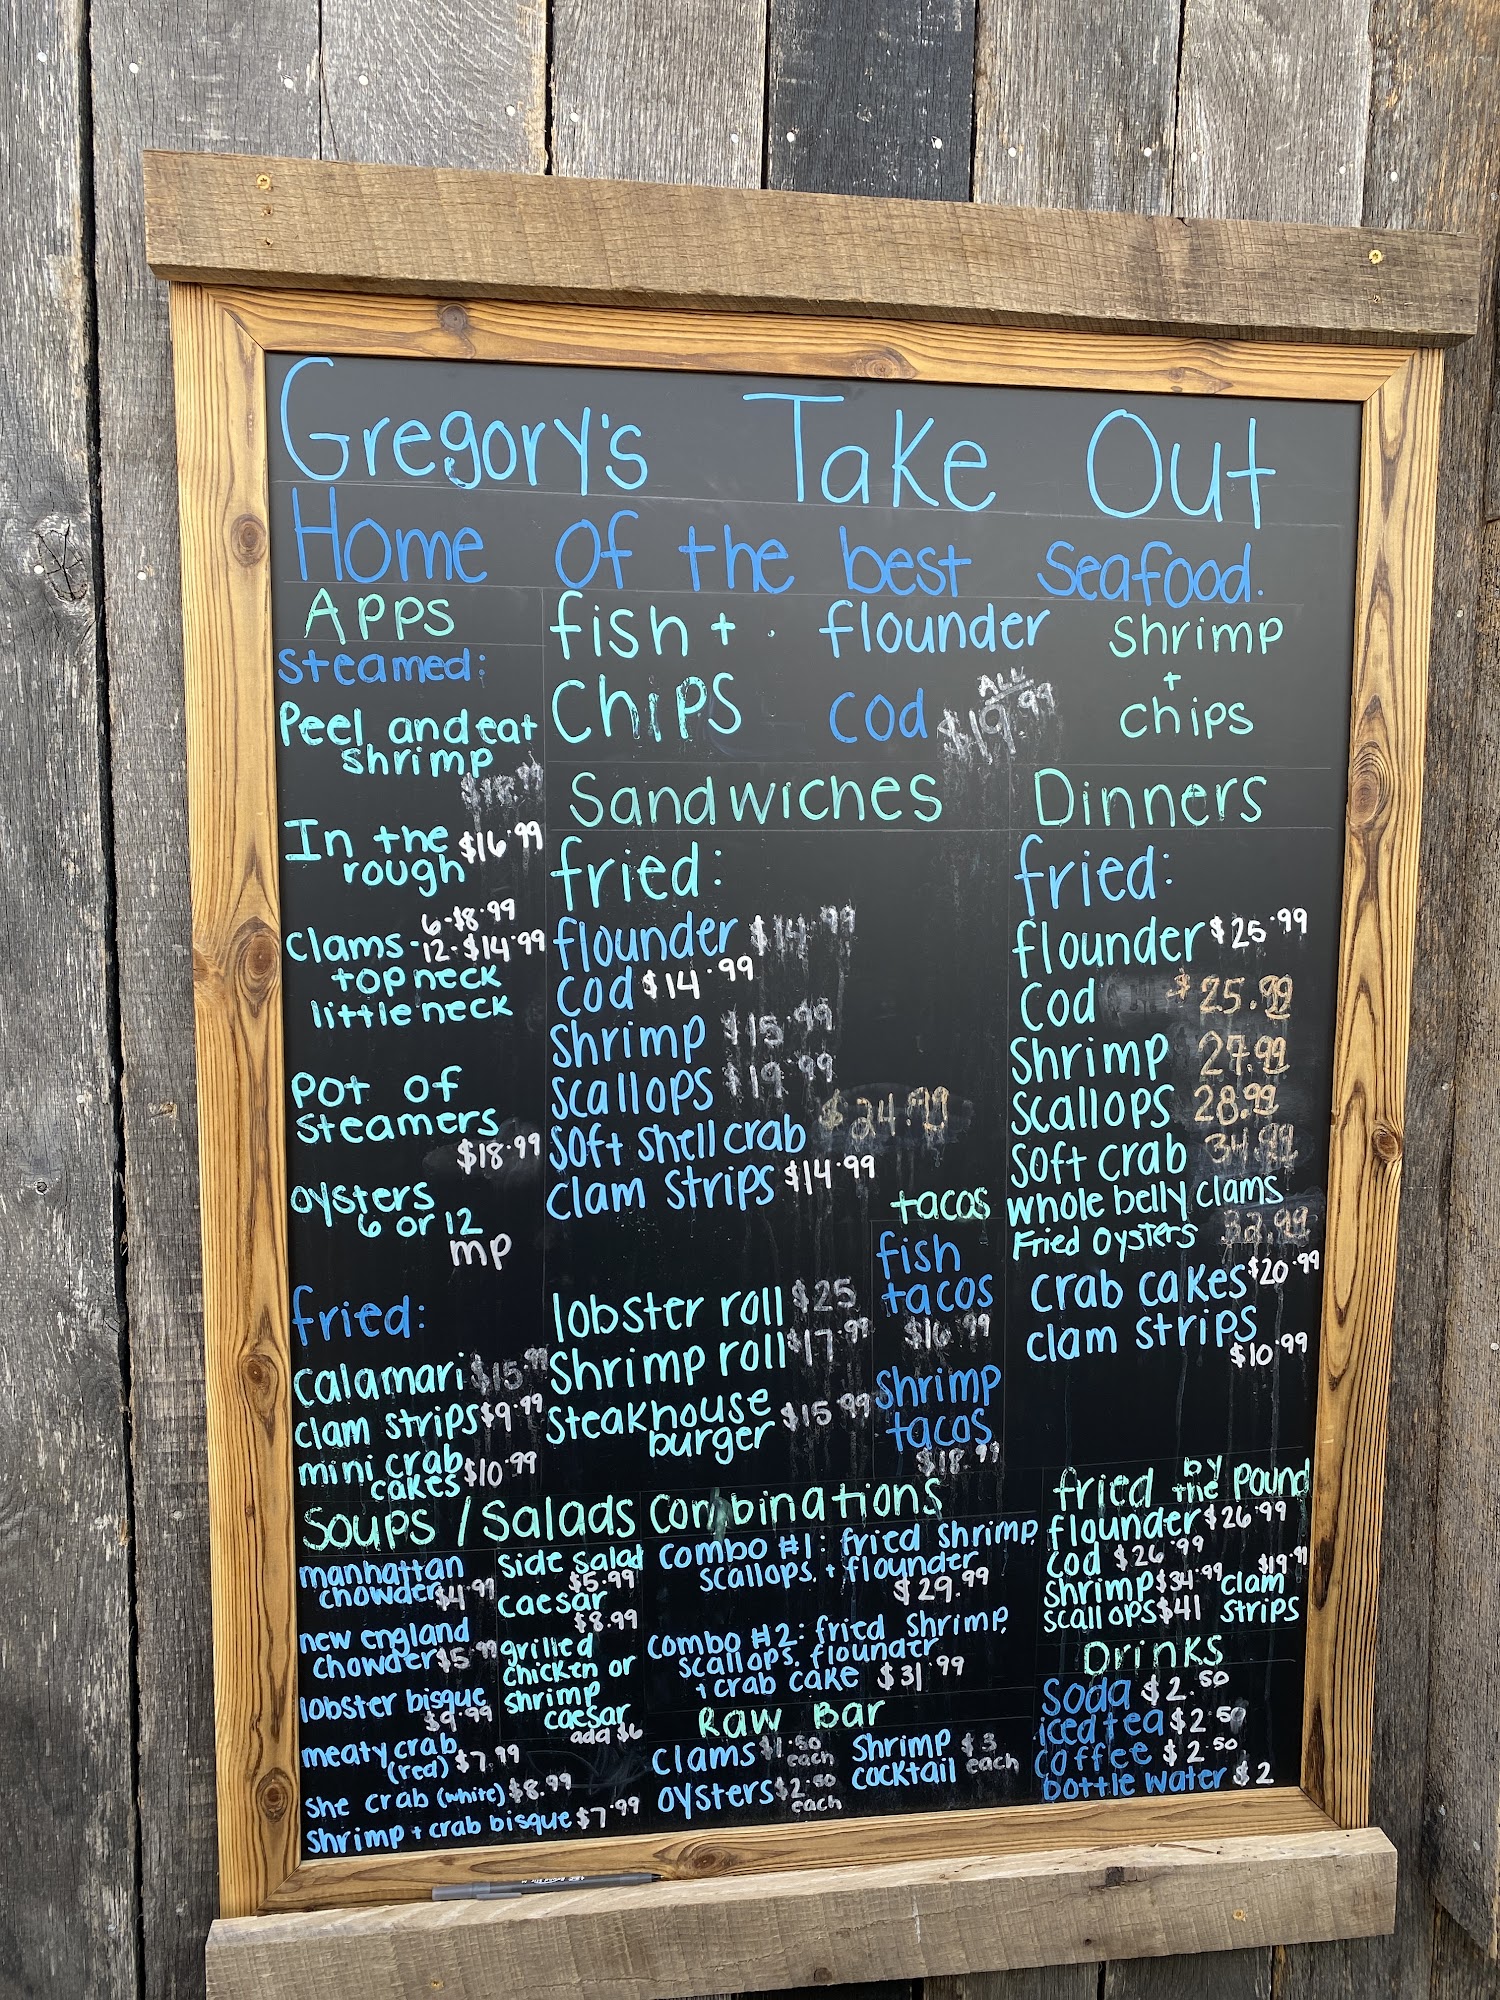 Gregory's Take Out
Home of the best Seafood.
Apps
Steamed:
Peel and eat
shrimp
$18.99
In the
rough $16.99
6-$8.99
Clams - 12-$14.99
top neck
little neck
Pot of
Steamers
$18.99
oysters
6 or 12
mp
fried:
Calamari $15.99
clam strips $9.99
mini crab
cakes $10.99
fish +
Chips
flounder
cod
ALL
$19.99
Shrimp
+
chips
Sandwiches
fried:
flounder $14.99
cod $14.99
Shrimp $15.99
scallops $19.99
soft shell crab $24.99
clam strips $14.99
lobster roll $25
Shrimp roll $17.99
Steakhouse
burger $15.99
tacos
fish
tacos
$16.99
Shrimp
tacos
$18.99
Dinners
fried:
flounder $25.99
Cod $25.99
Shrimp 27.99
scallops 28.99
soft crab 34.99
whole belly clams
Fried oysters 32.99
crab cakes $20.99
clam strips
$10.99
Soups / Salads
manhattan
chowder $4.99
new england
chowder $5.99
lobster bisque
$9.99
meaty crab
(red) $7.99
She crab (white) $8.99
Shrimp + crab bisque $7.99
Side Salad
$5.99
caesar
$8.99
grilled
chicken or
shrimp
caesar
add $6
Combinations
combo #1: fried shrimp,
scallops, + flounder
$29.99
combo #2: fried shrimp,
scallops, flounder
+ crab cake $31.99
Raw Bar
Clams $1.50
each
oysters $2.50
each
Shrimp
cocktail $3
each
fried by
the Pound
flounder $26.99
cod $26.99
Shrimp $34.99
scallops $41
$19.99
clam
strips
Drinks
Soda $2.50
iced tea $2.50
coffee $2.50
bottle water $2